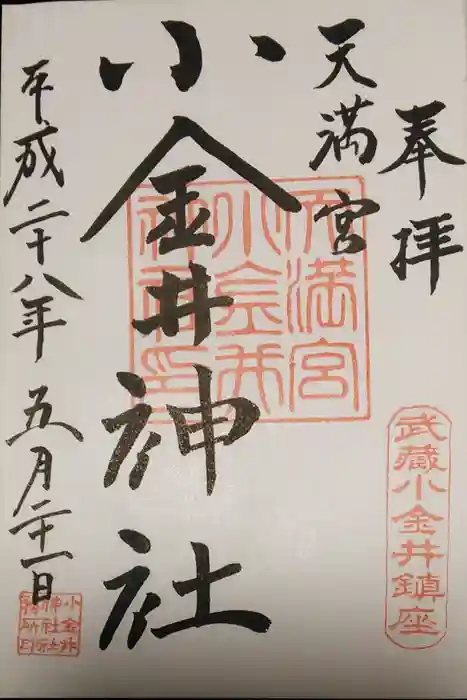 奉拝
武蔵小金井鎮座
天満宮
天満宮小金井神社印
小金井神社
平成二十八年五月二十一日
小金井神社社務所印